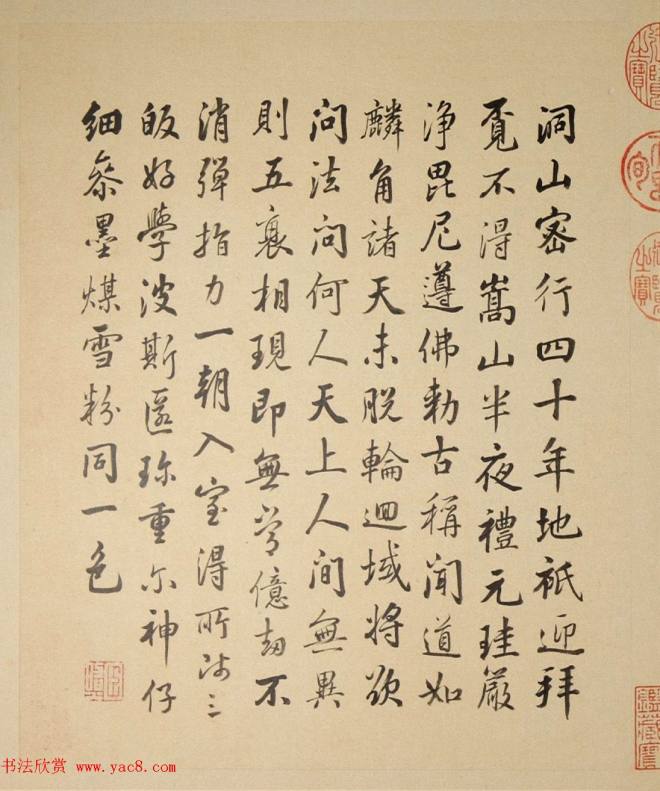 洞山密行四十年地祇迎拜
覔不得嵩山半夜禮元珪嚴
淨毘尼遵佛勅古稱聞道如
麟角諸天未脱輪迴域將欲
問法問何人天上人間無異
則五衰相現即無常億劫不
消彈指力一朝入室得所歸三
皈好學波斯匿珎重尒神仔
細叅墨煤雪粉同一色
鑑藏寶
书法欣赏 www.yac8.com